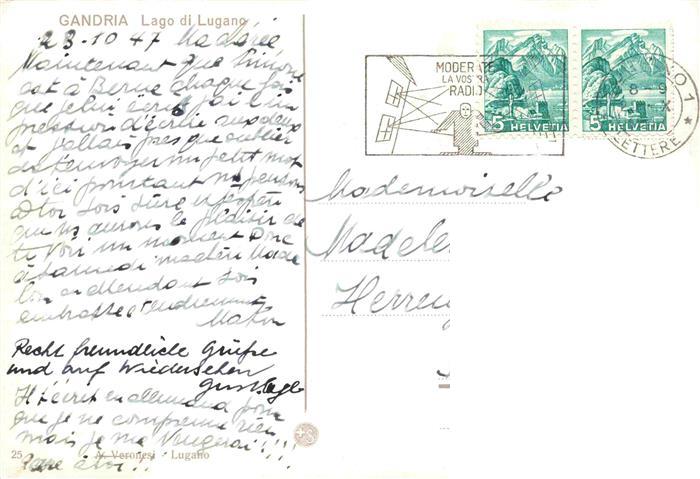 GANDRIA Lago di Lugano
23.10 47
Maintenant que Simone
est à Berne chaque fois
que je lui écris j'ai l'im
pression d'écrire aux deux
et j'allais presque oublier
de t'envoyer un petit mot
d'ici pourtant ns pensons
à toi sois sûre et espère
que ns aurons le plaisir de
te voir un moment donc
à samedi ma chère Made
lon en attendant sois
embrassée tendrement
Recht freundliche Grüße
und auf Wiedersehen
Il écrit en allemand pour
que je ne comprenne rien
mais je me vengerai!!!!
Gare à toi!!
25 A. Veronesi Lugano
MODER
LA VOS
RADIO
5 HELVETIA
5 HELVETIA
LETTERE
Mademoiselle
Madele
Herren